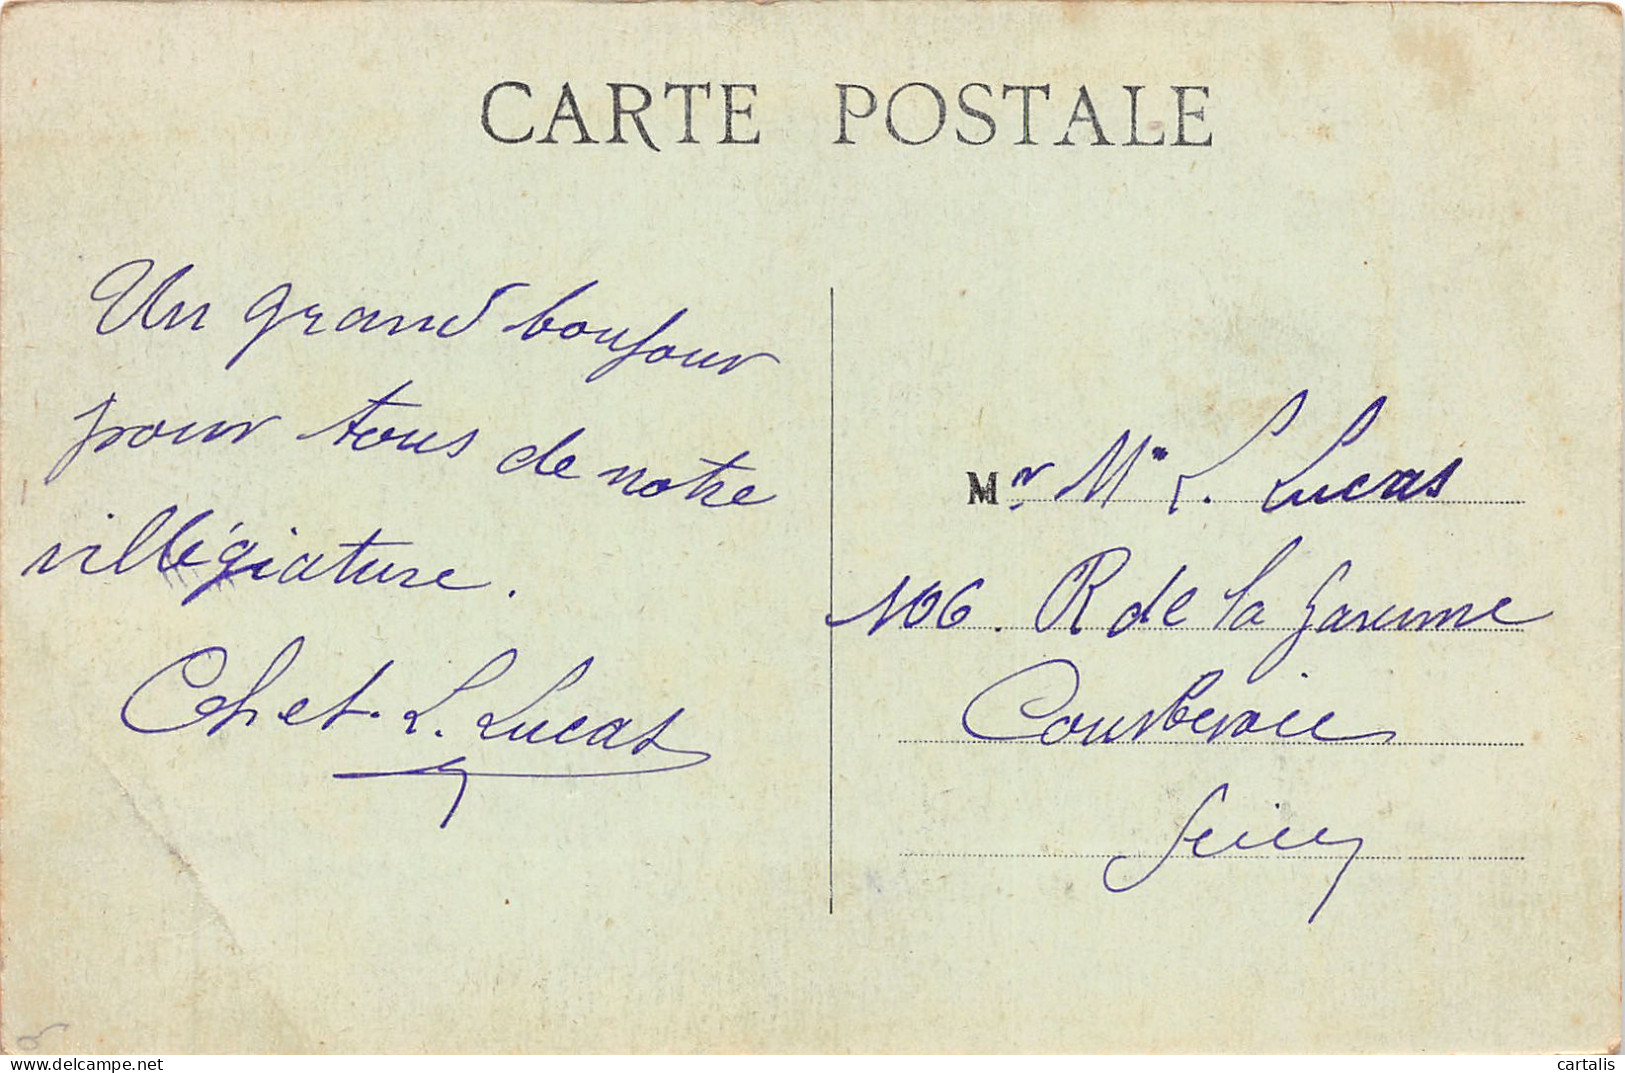 CARTE POSTALE
Un grand bonjour
pour tous de notre
villégiature.
Ch et L. Lucas
Mr Mme L. Lucas
106. R de la Garenne
Courbevoie
Seine
cartalis